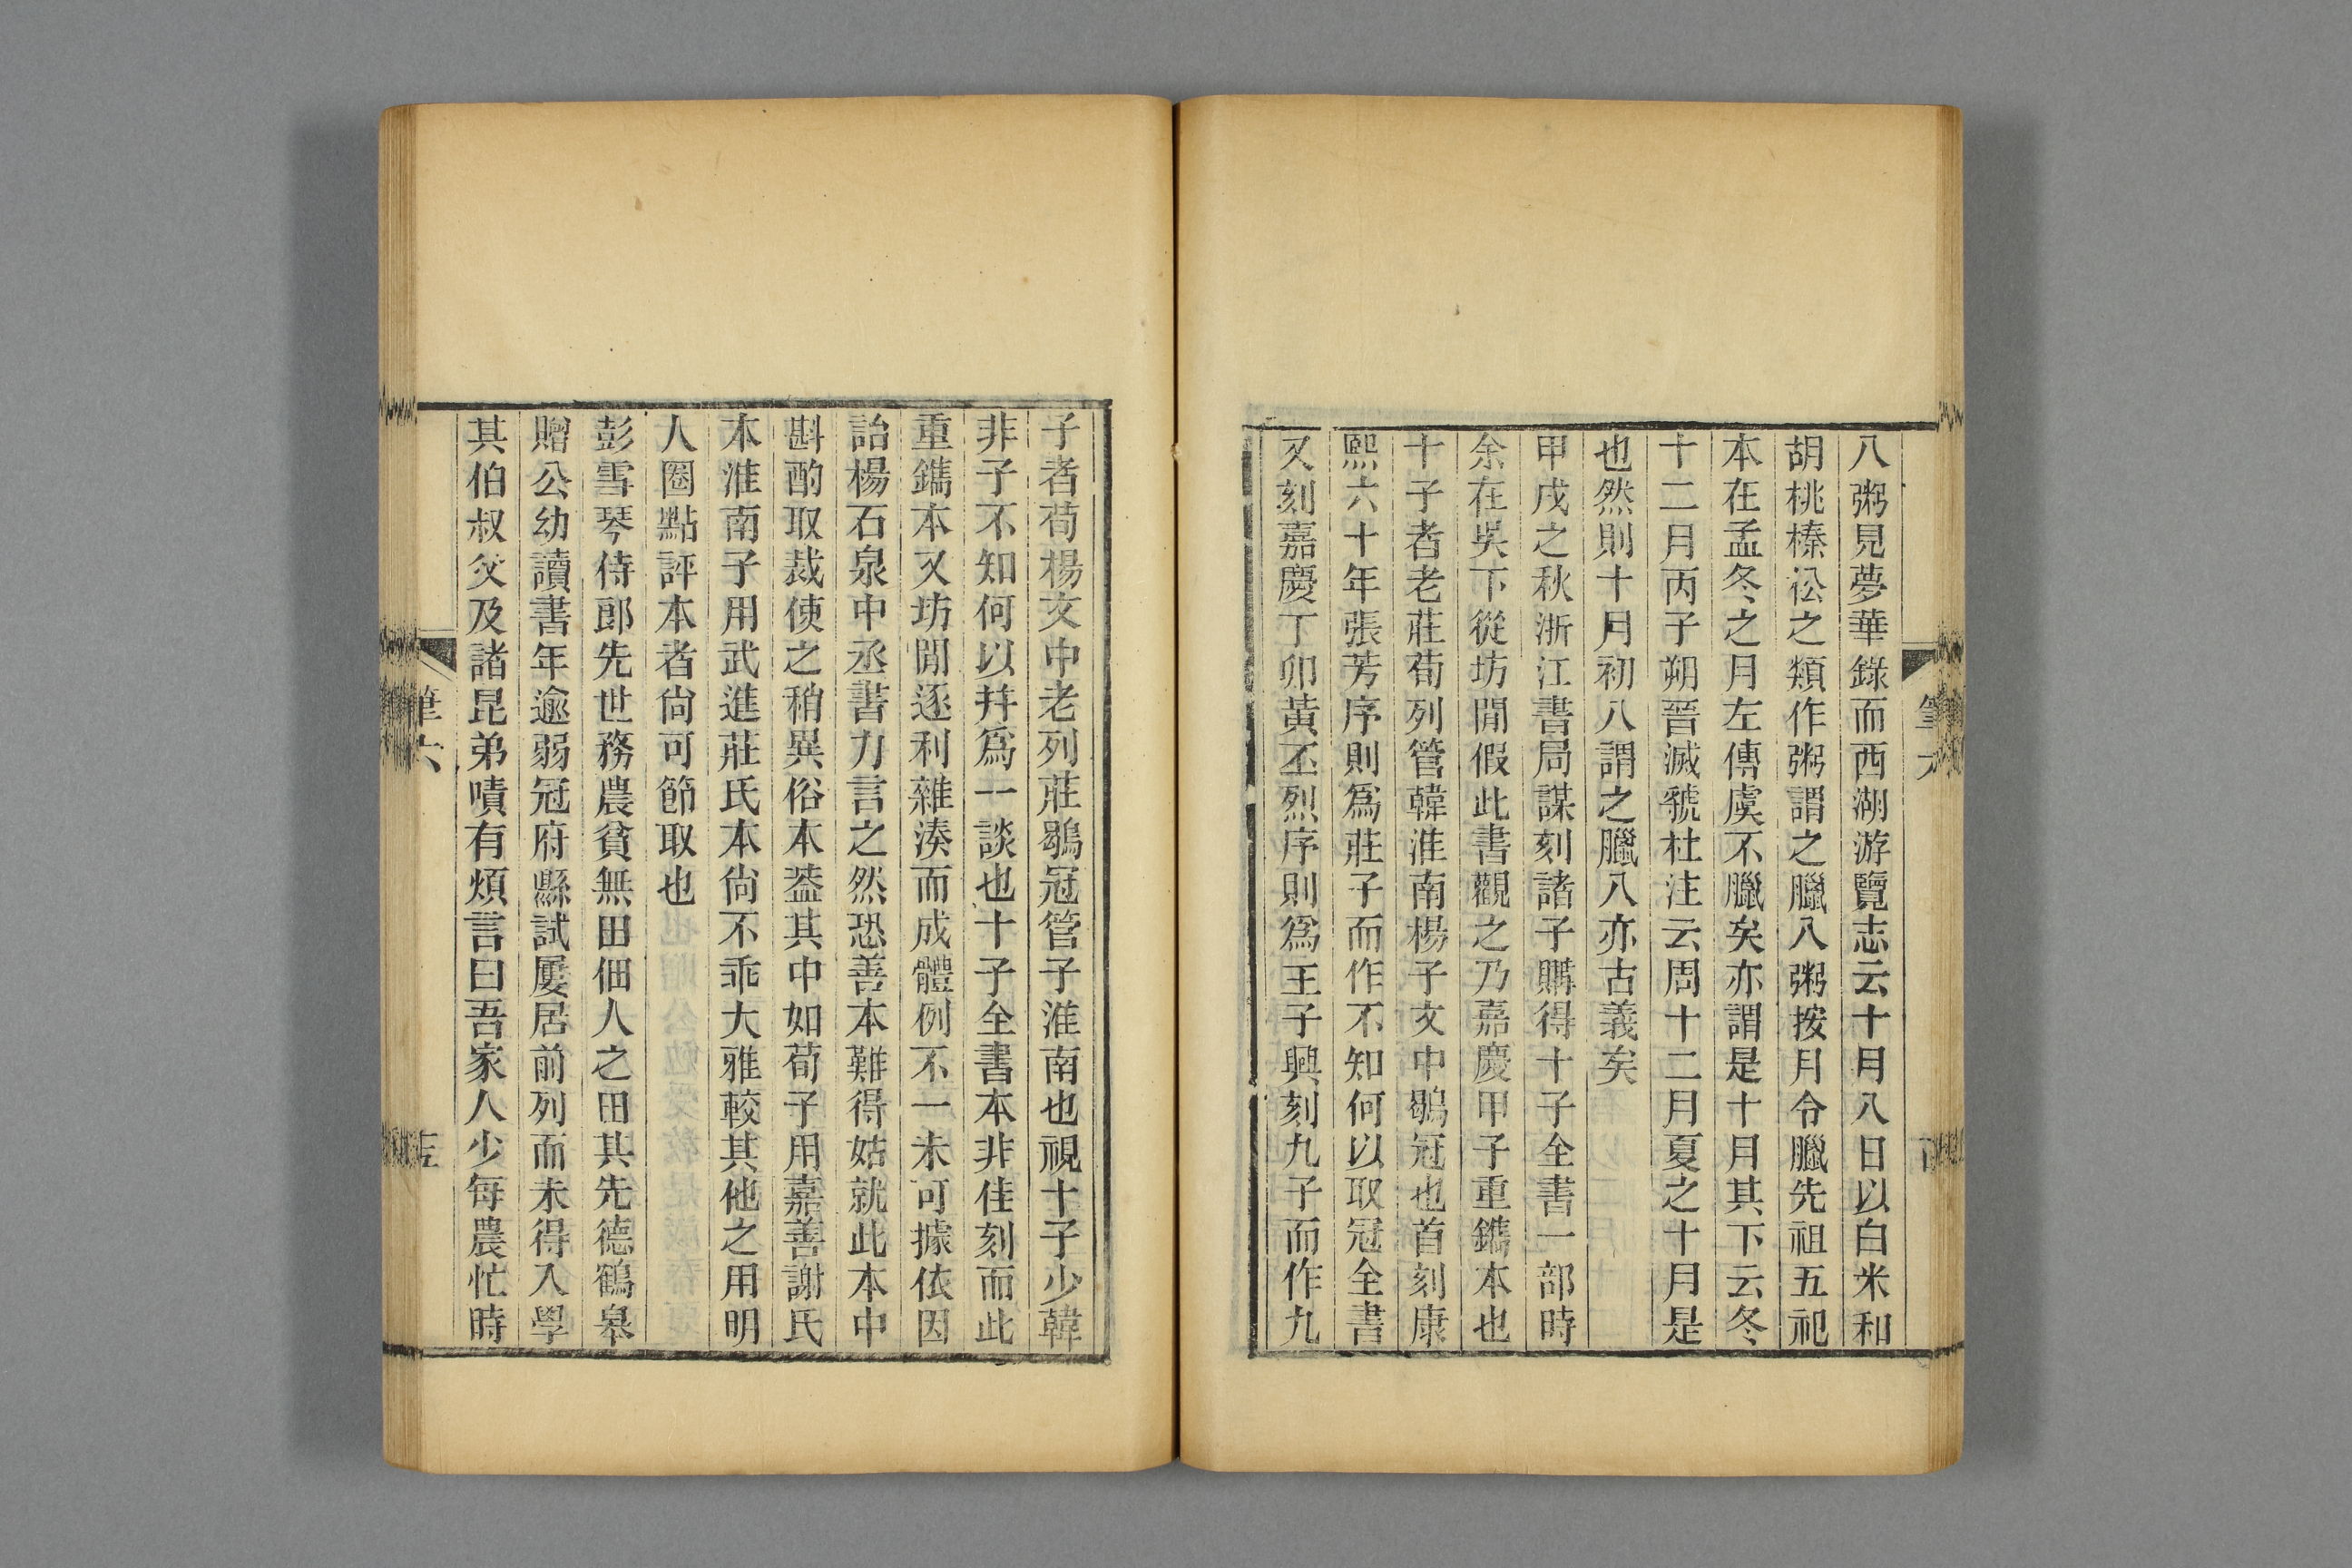 八粥見夢華錄而西湖游覽志云十月八日以白米和
胡桃榛松之類作粥謂之臘八粥按月令臘先祖五祀
本在孟冬之月左傳虞不臘矣亦謂是十月其下云冬
十二月丙子朔晉滅虢杜注云周十二月夏之十月是
也然則十月初八謂之臘八亦古義矣
甲戌之秋浙江書局謀刻諸子購得十子全書一部時
余在吳下從坊閒假此書觀之乃嘉慶甲子重鐫本也
十子者老莊荀列管韓淮南楊子文中鶡冠也首刻康
熙六十年張芳序則爲莊子而作不知何以取冠全書
又刻嘉慶丁卯黃丕烈序則爲王子興刻九子而作九
子者荀楊文中老列莊鶡冠管子淮南也視十子少韓
非子不知何以幷爲一談也十子全書本非佳刻而此
重鐫本又坊閒逐利雜湊而成體例不一未可據依因
詒楊石泉中丞書力言之然恐善本難得姑就此本中
斟酌取裁使之稍異俗本葢其中如荀子用嘉善謝氏
本淮南子用武進莊氏本尙不乖大雅較其他之用明
人圈點評本者尙可節取也
彭雪琴侍郎先世務農貧無田佃人之田其先德鶴皋
贈公幼讀書年逾弱冠府縣試屢居前列而未得入學
其伯叔父及諸昆弟嘖有煩言曰吾家人少每農忙時
筆六